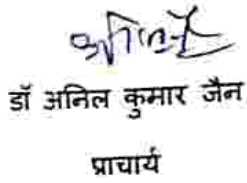 डॉ अनिल कुमार जैन
प्राचार्य